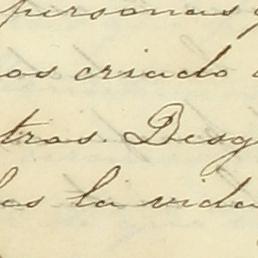 personas
os criado
tras. Desg
las la vida